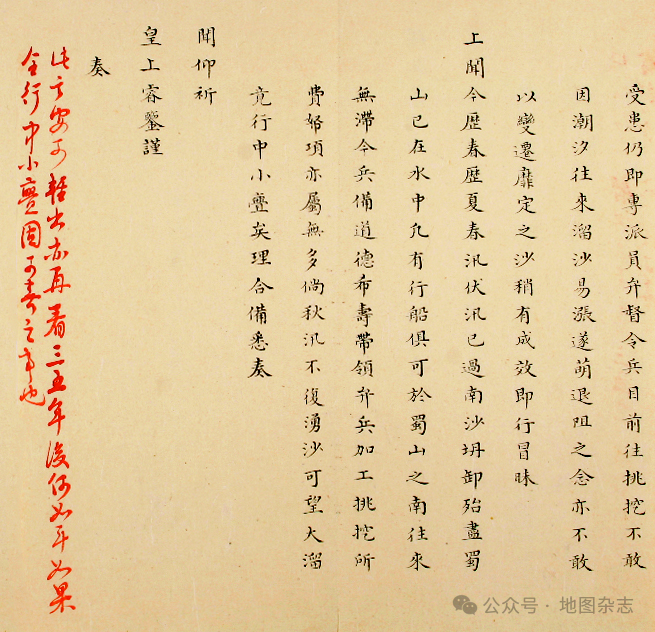 受患仍即專派員弁督令兵目前往挑挖不敢
因潮汐往來溜沙易漲遂萌退阻之念亦不敢
以變遷靡定之沙稍有成效即行冒昧
上聞今歷春歷夏春汛伏汛已過南沙坍卸殆盡蜀
山已在水中凡有行船俱可於蜀山之南往來
無滯今兵備道德希壽帶領弁兵加工挑挖所
費帑項亦屬無多倘秋汛不復湧沙可望大溜
竟行中小亹矣理合備悉奏
聞仰祈
皇上睿鑒謹
奏
再看三五年後何如耳如果
全行中小亹固可喜之事也
公众号·地图杂志